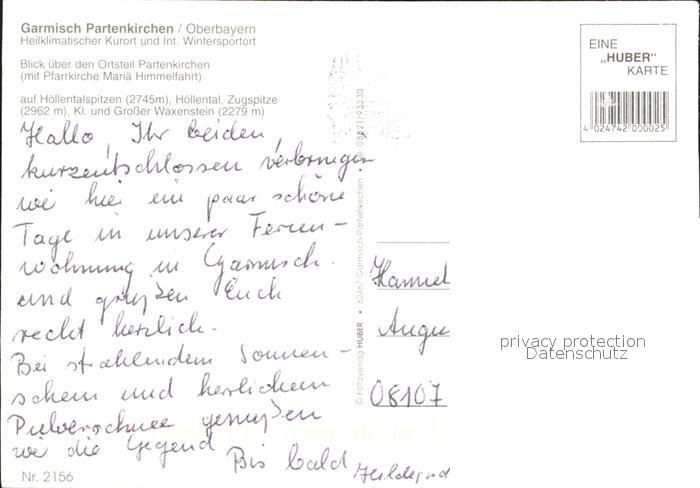 Garmisch Partenkirchen / Oberbayern
Heilklimatischer Kurort und Int. Wintersportort
Blick über den Ortsteil Partenkirchen
(mit Pfarrkirche Mariä Himmelfahrt)
auf Höllentalspitzen (2745m), Höllental, Zugspitze
(2962 m), Kl. und Großer Waxenstein (2279 m)
Hallo, Ihr beiden,
kurzentschlossen verbringen
wir hier ein paar schöne
Tage in unserer Ferien-
wohnung in Garmisch.
und grüßen Euch
recht herzlich.
Bei strahlendem Sonnen-
schein und herrlichem
Pulverschnee genießen
wir die Gegend
Bis bald
Hildegard
Nr. 2156
© Fotoverlag HUBER • 82467 Garmisch-Partenkirchen •
EINE
„HUBER"
KARTE
4 024742 000025
08107
privacy protection
Datenschutz